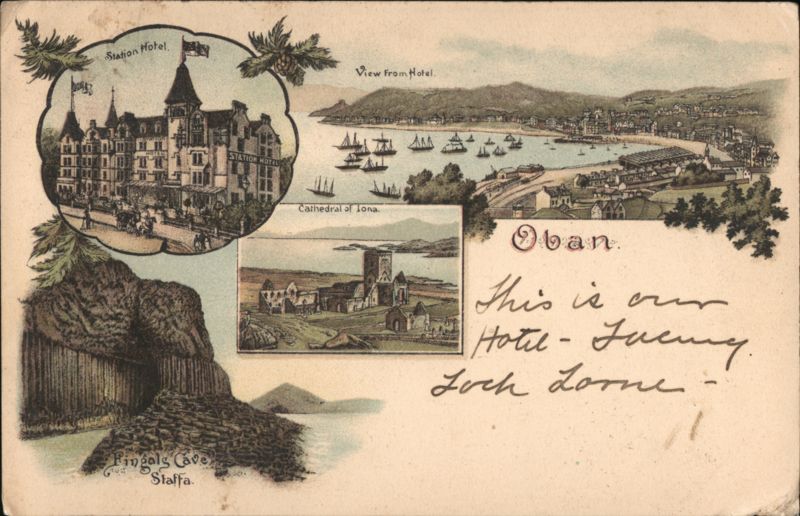 Station Hotel.
STATION HOTEL
View from Hotel.
Cathedral of Iona.
Oban.
This is our
Hotel - Facing
Loch Lorne -
Fingals Cave
Staffa.